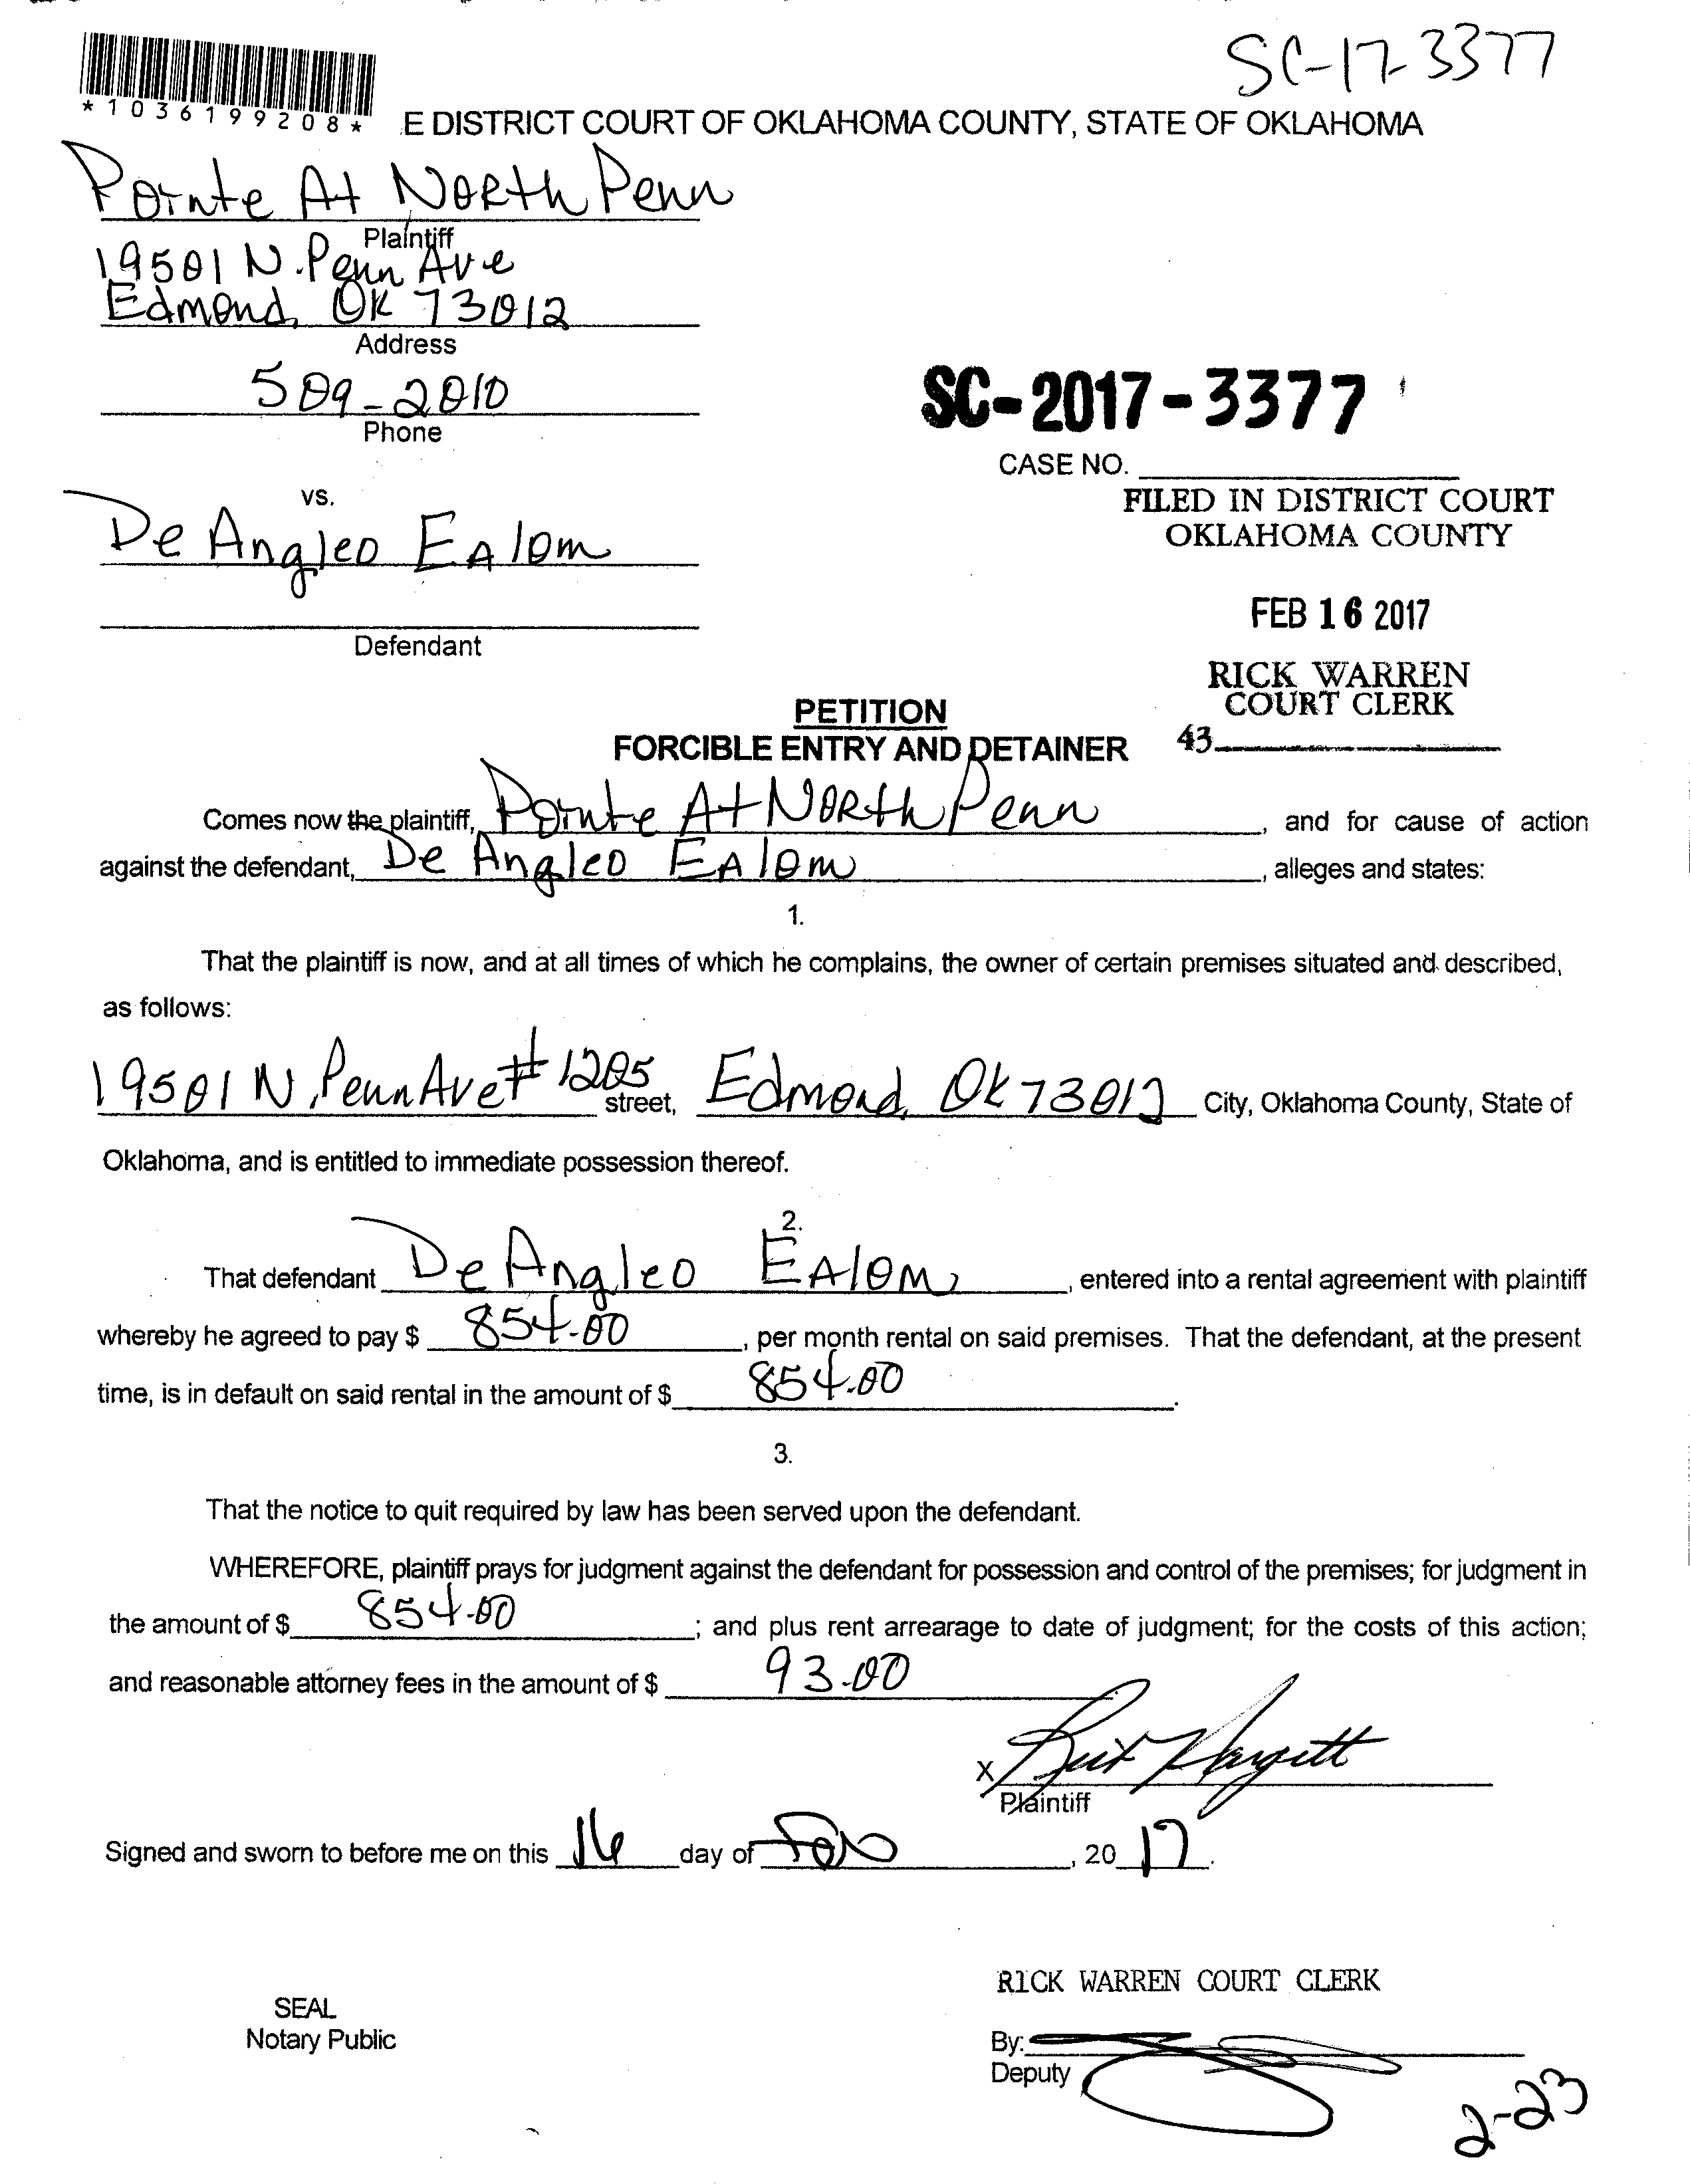 SC-17-3377
*1036199208*
E DISTRICT COURT OF OKLAHOMA COUNTY, STATE OF OKLAHOMA
Pointe At North Penn
Plaintiff
19501 N. Penn Ave
Edmond, OK 73012
Address
509-2010
Phone
SC-2017-3377
CASE NO.
vs.
FILED IN DISTRICT COURT
OKLAHOMA COUNTY
De Angleo Ealom
FEB 16 2017
Defendant
RICK WARREN
COURT CLERK
43
PETITION
FORCIBLE ENTRY AND DETAINER
Comes now the plaintiff, Pointe At North Penn, and for cause of action
against the defendant, De Angleo Ealom, alleges and states:
1.
That the plaintiff is now, and at all times of which he complains, the owner of certain premises situated and described,
as follows:
19501 N. Penn Ave # 1205 street, Edmond, Ok 73012 City, Oklahoma County, State of
Oklahoma, and is entitled to immediate possession thereof.
2.
That defendant De Angleo Ealom, entered into a rental agreement with plaintiff
whereby he agreed to pay $ 854.00, per month rental on said premises. That the defendant, at the present
time, is in default on said rental in the amount of $ 854.00.
3.
That the notice to quit required by law has been served upon the defendant.
WHEREFORE, plaintiff prays for judgment against the defendant for possession and control of the premises; for judgment in
the amount of $ 854.00; and plus rent arrearage to date of judgment; for the costs of this action;
and reasonable attorney fees in the amount of $ 93.00
X Hargett
Plaintiff
Signed and sworn to before me on this 16 day of Feb, 2017.
RICK WARREN COURT CLERK
SEAL
Notary Public
By:
Deputy
2-23